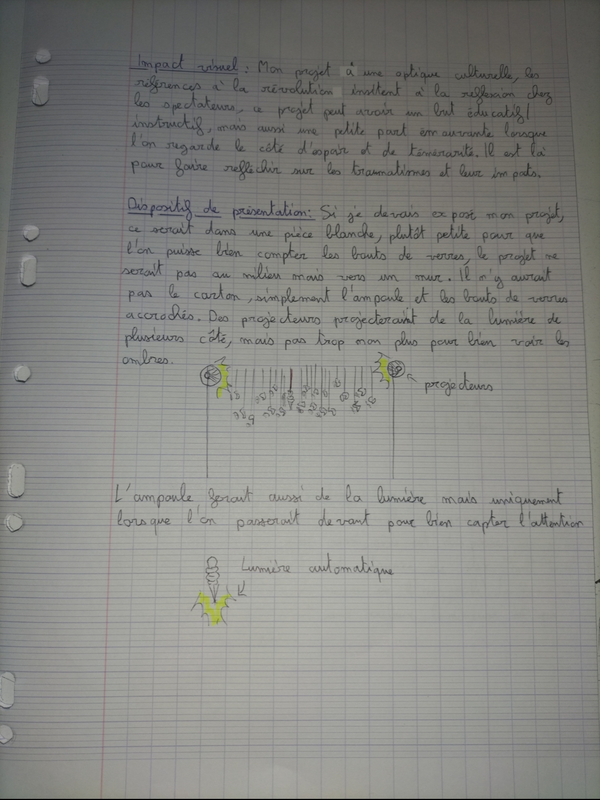 Impact visuel : Mon projet à une optique culturelle, les
références à la révolution insitent à la reflexion chez
les spectateurs, ce projet peut avoir un but éducatif/
instructif, mais aussi une petite part émouvante lorsque
l'on regarde le côté d'espoir et de témérarité. Il est là
pour faire reflechir sur les traumatismes et leur impats.
Dispositif de présentation : Si je devais exposé mon projet,
ce serait dans une pièce blanche, plutôt petite pour que
l'on puisse bien compter les bouts de verres, le projet ne
serait pas au milieu mais vers un mur. Il n'y aurait
pas le carton, simplement l'ampoule et les bouts de verres
accrochés. Des projecteurs projecteraint de la lumière de
plusieurs côté, mais pas trop non plus pour bien voir les
ombres.
projecteurs
L'ampoule ferait aussi de la lumière mais uniquement
lorsque l'on passerait devant pour bien capter l'attention
Lumière automatique